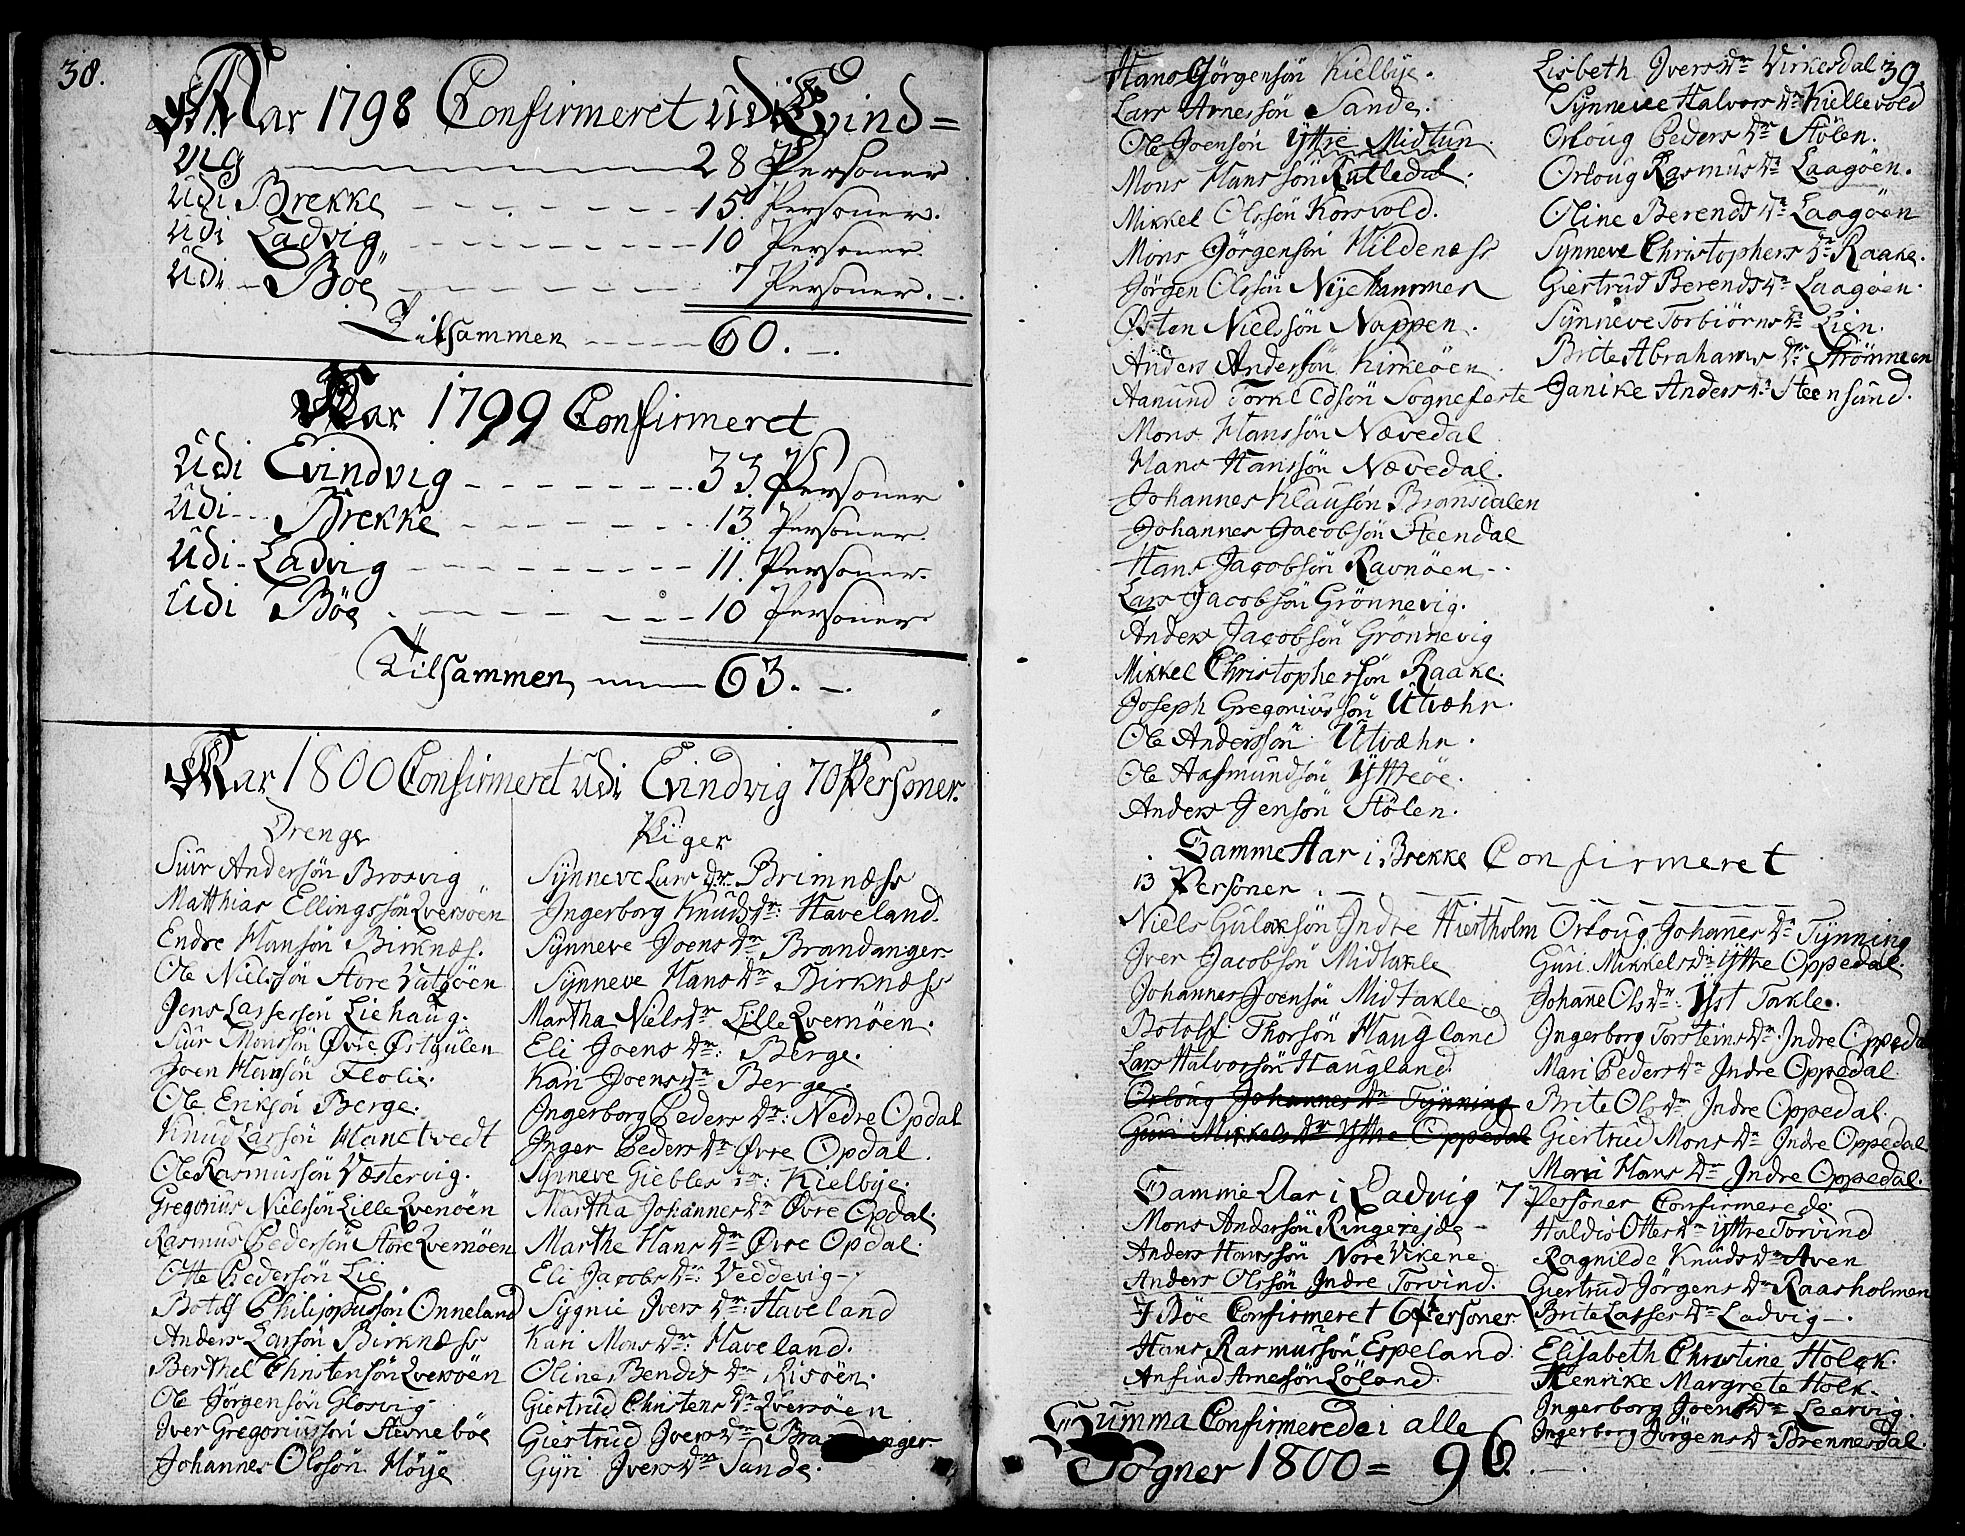 38.
Aar 1798 Confirmeret udi Evind=
vig 28 Personer
udi Brekke 15 Personer.
udi Ladvig 10 Personer.
udi Böe 7 Personer.
Tilsammen 60.
Aar 1799 Confirmeret
udi Evindvig 33 Personer
udi Brekke 13 Personer.
udi Ladvig 11. Personer.
udi Böe 10 Personer.
Tilsammen 63.
Aar 1800 Confirmeret udi Evindvig 70 Personer.
Drenge
Siur Andersön Brosvig
Matthias Ellingssön Qversöen
Endre Hansön Birknæs.
Ole Nielssön Store
Jens Lassesön Liehaug.
Siur Monssön Övre Östgulen
Joen Hansön Flolie.
Ole Eriksön Berge.
Knud Larsön
Ole Rasmussön Væstervig.
Gregorius Nielssön Lille Qvernöen
Rasmus Pedersön Store Qvernöen
Otte Pedersön Lie
Botolf Philippussön Onneland
Anders Larsön Birknæss
Berthel Christensön Qversöen
Ole Jörgensön Glosvig.
Iver Gregoriussön Stevneböe
Johannes Olssön Höije
Piger
Synneve Lars dr. Brimnæss
Ingerborg Knuds dr: Haveland.
Synneve Joens dr Brandanger
Synneve Hans dr Birknæss
Martha Niels dr Lille Qvernöen.
Eli Joens dr: Berge.
Kari Joens dr Berge.
Ingerborg Peders dr: Nedre Opdal
Inger Peders dr Övre Opdal.
Synneve Giebles dr: Kielbye.
Martha Johannes dr Övre Opdal.
Marthe Hans dr Övre Opdal.
Eli Jacobs dr: Veddevig
Sygnie Ivers dr: Haveland
Kari Mons dr: Haveland.
Oline Bendis dr Risöen.
Giertrud Christens dr Qversöen
Giertrud Ivers dr
Gyri Ivers dr Sande.
Hans Görgensön Kielbye.
Lars Arnessön Sande.
Ole Joensön Yttre Midtun.
Mons Hanssön Rutledal.
Mikkel Olssön Korsvold.
Mons Jörgensön Hildenæss
Jörgen Olssön Nyehammer
Östen Nielssön Nappen.
Anders Andersön Kirkeöen.
Aamund Torkildsön Sognefeste
Mons Hanssön Nævedal
Hans Hanssön Nævedal.
Johannes Klausön Bransdalen
Johannes Jacobsön Steendal
Hans Jacobsön Ravnöen
Lars Jacobsön Grönnevig.
Anders Jacobsön Grönnevig
Mikkel Christophersön Raake.
Joseph Gregoriussön Utvæhr.
Ole Anderssön Utvæhr.
Ole Aasmundsön Ytteöe.
Anders Jensön Stölen.
39.
Lisbeth Ivers dr Virkesdal
Synneve Halvors dr Kiellevold
Orloug Peders dr Stölen.
Orloug Rasmus dr Laagöen.
Oline Berends dr Laagöen
Synneve Christophers dr Raake.
Giertrud Berends dr Laagöen.
Synneve Torbiörns dr Lien.
Brite Abrahams dr Strömmen
Janike Anders dr Steensund.
Samme Aar i Brekke Confirmeret
13 Personer.
Niels Gulaksön Indre Hiertholm
Iver Jacobsön Midtakle
Johannes Joensön Midtakle
Botolf Thorsön Haugland
Lars Halvorsön Haugland
Orloug Johannes dr Tynning
Guri Mikkels dr Yttre Oppedal
Orloug Johannes dr Tynning
Guri Mikkels dr Yttre Oppedal.
Johanne Ols dr: Yst Takle.
Ingerborg Torsteins dr. Indre Oppedal
Mari Peders dr Indre Oppedal
Brite Ols dr Indre Oppedal.
Giertrud Mons dr Indre Oppedal
Mari Hans dr Indre Oppedal.
Samme Aar i Ladvig 7 Personer Confirmerede.
Mons Andersön Ringereide
Anders Hanssön Nore Vikene
Anders Olssön Indre Torvind.
Haldis Otters dr Yttre Torvind
Ragnilde Knuds dr Aven
Giertrud Jörgens dr Raasholmen
Brite Lasses dr Ladvig.
I Böe Confirmeret 6 Personer
Hans Rasmussön Espeland.
Anfind Arnesön Löland.
Elisabeth Christine Holck.
Henrike Margrete Holk.
Ingerborg Joens dr Leervig.
Ingerborg Jörgens dr Brennesdal.
Summa Confirmerede i alle
Sogner 1800 = 96.